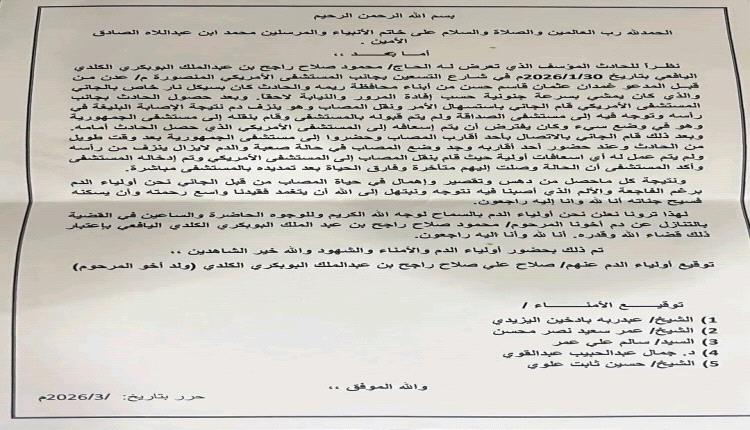 بسم الله الرحمن الرحيم
الحمدلله رب العالمين والصلاة والسلام على خاتم الأنبياء والمرسلين محمد ابن عبداللاه الصادق
الأمين .
أما بعد ،،
نظراً للحادث المؤسف الذي تعرض له الحاج/ محمود صلاح راجح بن عبدالملك البوبكري الكلدي
اليافعي بتاريخ 2026/1/30م في شارع التسعين بجانب المستشفى الأمريكي المنصورة م/ عدن من
قبل المدعو غمدان عثمان قاسم حسن من أبناء محافظة ريمه والحادث كان بسيكل نار خاص بالجاني
والذي كان يمشي بسرعة جنونية حسب إفادة المرور والنيابة لاحقا. وبعد حصول الحادث بجانب
المستشفى الأمريكي قام الجاني باستسهال الأمر ونقل المصاب وهو ينزف دم نتيجة الإصابة البليغة في
رأسه وتوجه فيه إلى مستشفى الصداقة ولم يتم قبوله بالمستشفى وقام بنقله إلى مستشفى الجمهورية
وهو في وضع سيء وكان يفترض أن يتم إسعافه إلى المستشفى الأمريكي الذي حصل الحادث أمامه.
وبعد ذلك قام الجاني بالاتصال بأحد أقارب المصاب وحضروا إلى مستشفى الجمهورية بعد وقت طويل
من الحادث وعند حضور أحد أقاربه وجد وضع المصاب في حالة صعبة والدم لايزال ينزف من رأسه
ولم يتم عمل له أي اسعافات أولية حيث قام بنقل المصاب إلى المستشفى الأمريكي وتم إدخاله المستشفى
وأكد المستشفى أن الحالة وصلت إليهم متأخرة وفارق الحياة بعد تمديده بالمستشفى مباشرة.
ونتيجة كل ماحصل من دهس وتقصير وإهمال في حياة المصاب من قبل الجاني نحن أولياء الدم
برغم الفاجعة والألم الذي أصبنا فيه نتوجه ونبتهل إلى الله أن يتغمد فقيدنا واسع رحمته وأن يسكنه
فسيح جناته أنا لله وأنا إليه راجعون.
لهذا ترونا نعلن نحن أولياء الدم بالسماح لوجه الله الكريم وللوجوه الحاضرة والساعين في القضية
بالتنازل عن دم أخونا المرحوم/ محمود صلاح راجح بن عبد الملك البوبكري الكلدي اليافعي بإعتبار
ذلك قضاء الله وقدره. أنا لله وأنا إليه راجعون.
تم ذلك بحضور أولياء الدم والأمناء والشهود والله خير الشاهدين ،،
توقيع أولياء الدم عنهم/ صلاح علي صلاح راجح بن عبدالملك البوبكري الكلدي (ولد أخو المرحوم)
توقيع الأمناء /
1) الشيخ/ عبدربه بادخين اليزيدي
2) الشيخ/ عمر سعيد نصر محسن
3) السيد/ سالم علي عمر
4) د. جمال عبدالحبيب عبدالقوي
5) الشيخ/ حسين ثابت علوي
والله الموفق ،،
حرر بتاريخ: /2026/3م